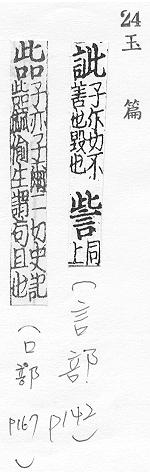 24
玉篇
訿 子尒切不善也毁也 訾 同上 (言部 p142)
啙 子亦子爾二切史記啙窳偷生謂苟且也 (口部 p167)